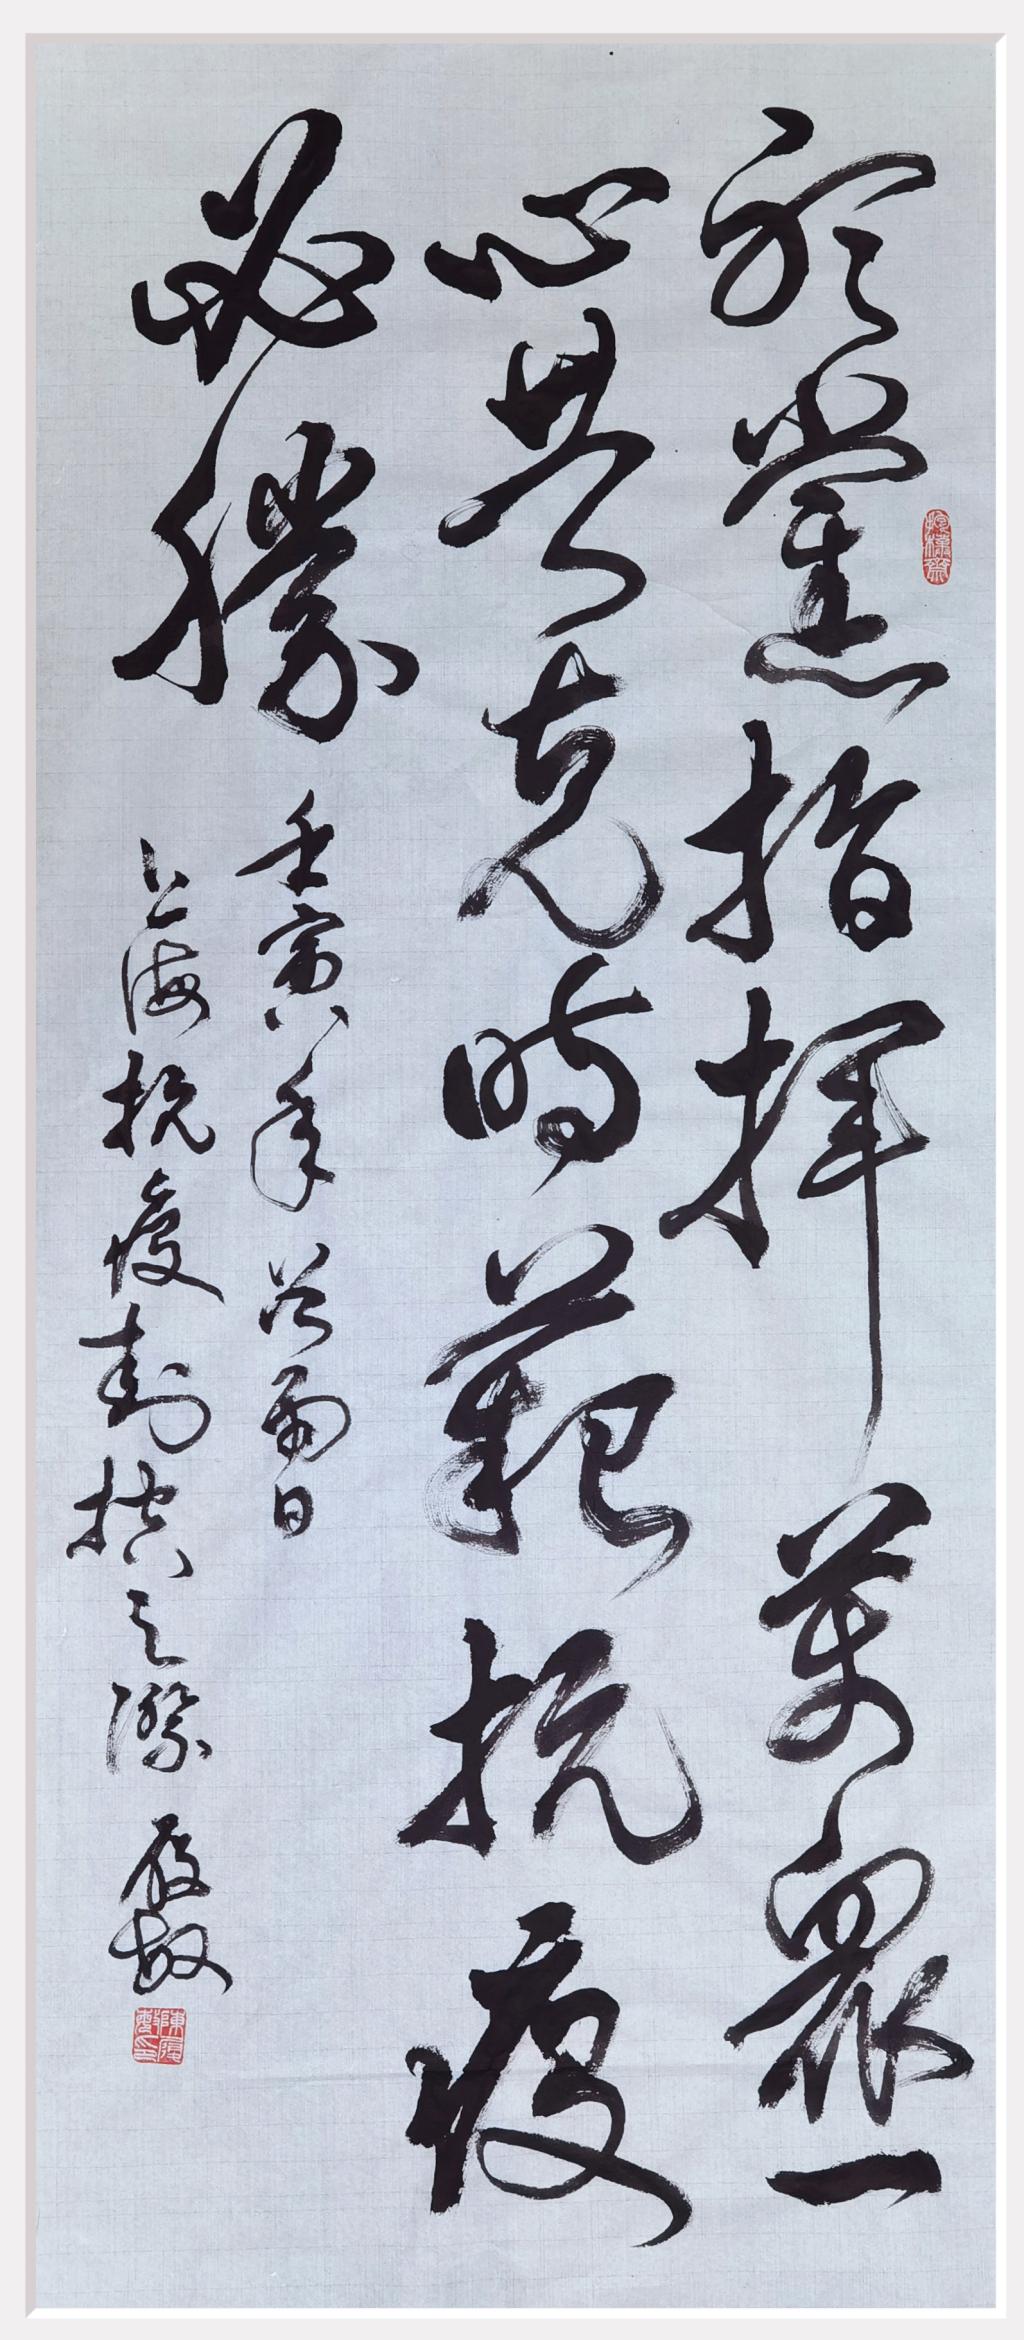 聽黨指揮萬眾一
心共克時艱抗疫
必勝
壬寅年谷雨日
上海抗疫封控之際